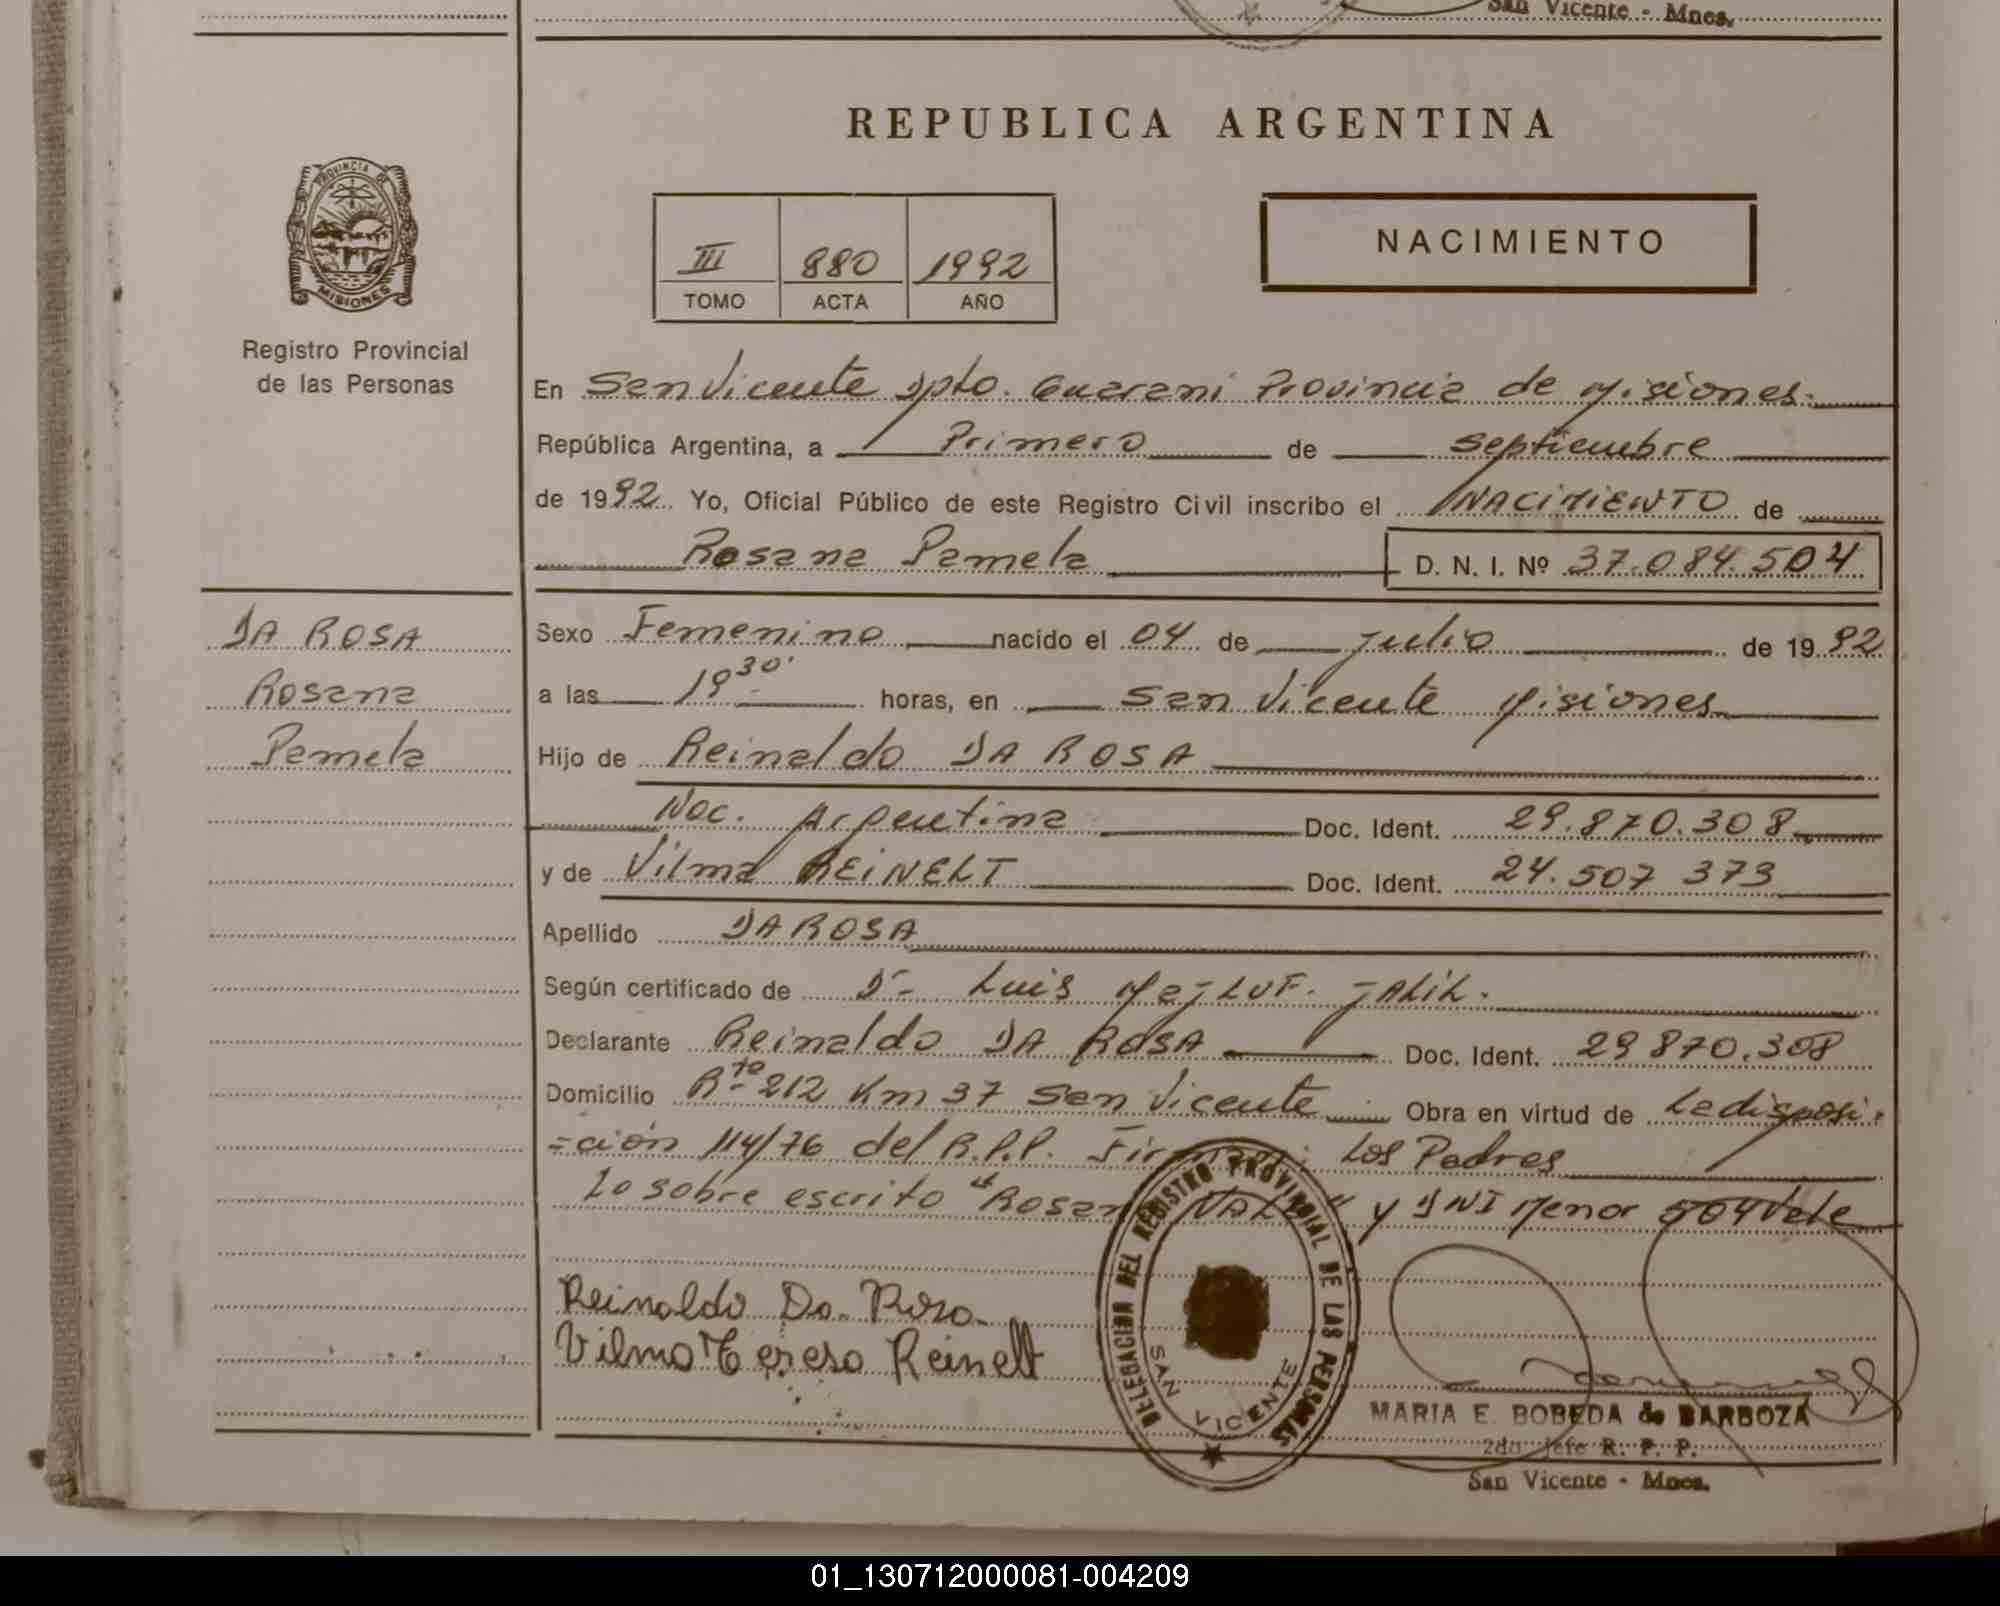 San Vicente - Mnes.
REPUBLICA ARGENTINA
PROVINCIA DE
MISIONES
III 880 1992
TOMO ACTA AÑO
NACIMIENTO
Registro Provincial
de las Personas
En San Vicente Dpto. Guarani Provincia de Misiones.
República Argentina, a Primero de Septiembre
de 1992. Yo, Oficial Público de este Registro Civil inscribo el NACIMIENTO de
Rosana Pamela D. N. I. Nº 37.084.504
DA ROSA
Rosana
Pamela
Sexo Femenino nacido el 04 de Julio de 1992
a las 19 30' horas, en San Vicente Misiones
Hijo de Reinaldo DA ROSA
Nac. Argentina Doc. Ident. 29.870.308
y de Vilma REINELT Doc. Ident. 24.507 373
Apellido DA ROSA
Según certificado de Dr Luis JALIL.
Declarante Reinaldo DA ROSA Doc. Ident. 29 870.308
Domicilio Rta 212 Km 37 San Vicente Obra en virtud de La disposi-
=ción 114/76 del R.P.P. Los Padres
Lo sobre escrito "Rosana y DNI Menor 504 Vale
Reinaldo Da Rosa
Vilma Teresa Reinelt
DELEGACION DEL REGISTRO PROVINCIAL DE LAS PERSONAS
SAN VICENTE
MARIA E. BOBEDA de BARBOZA
2do Jefe R. P. P.
San Vicente - Mnes.
01_130712000081-004209